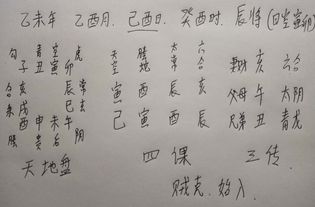 乙未年 乙酉月. 己酉日. 癸酉时. 辰将(旬空寅卯)
勾 青 空 虎 天空 螣蛇 太常 六合 亥 六合
子 丑 寅 卯 寅 酉 辰 亥 父母 午 太阴
合 亥 辰 常 己 寅 酉 辰 兄弟 丑 青虎
戌 巳
酉 申 未 午
后 阴
天地盘 四课 三传
贼克. 始入.